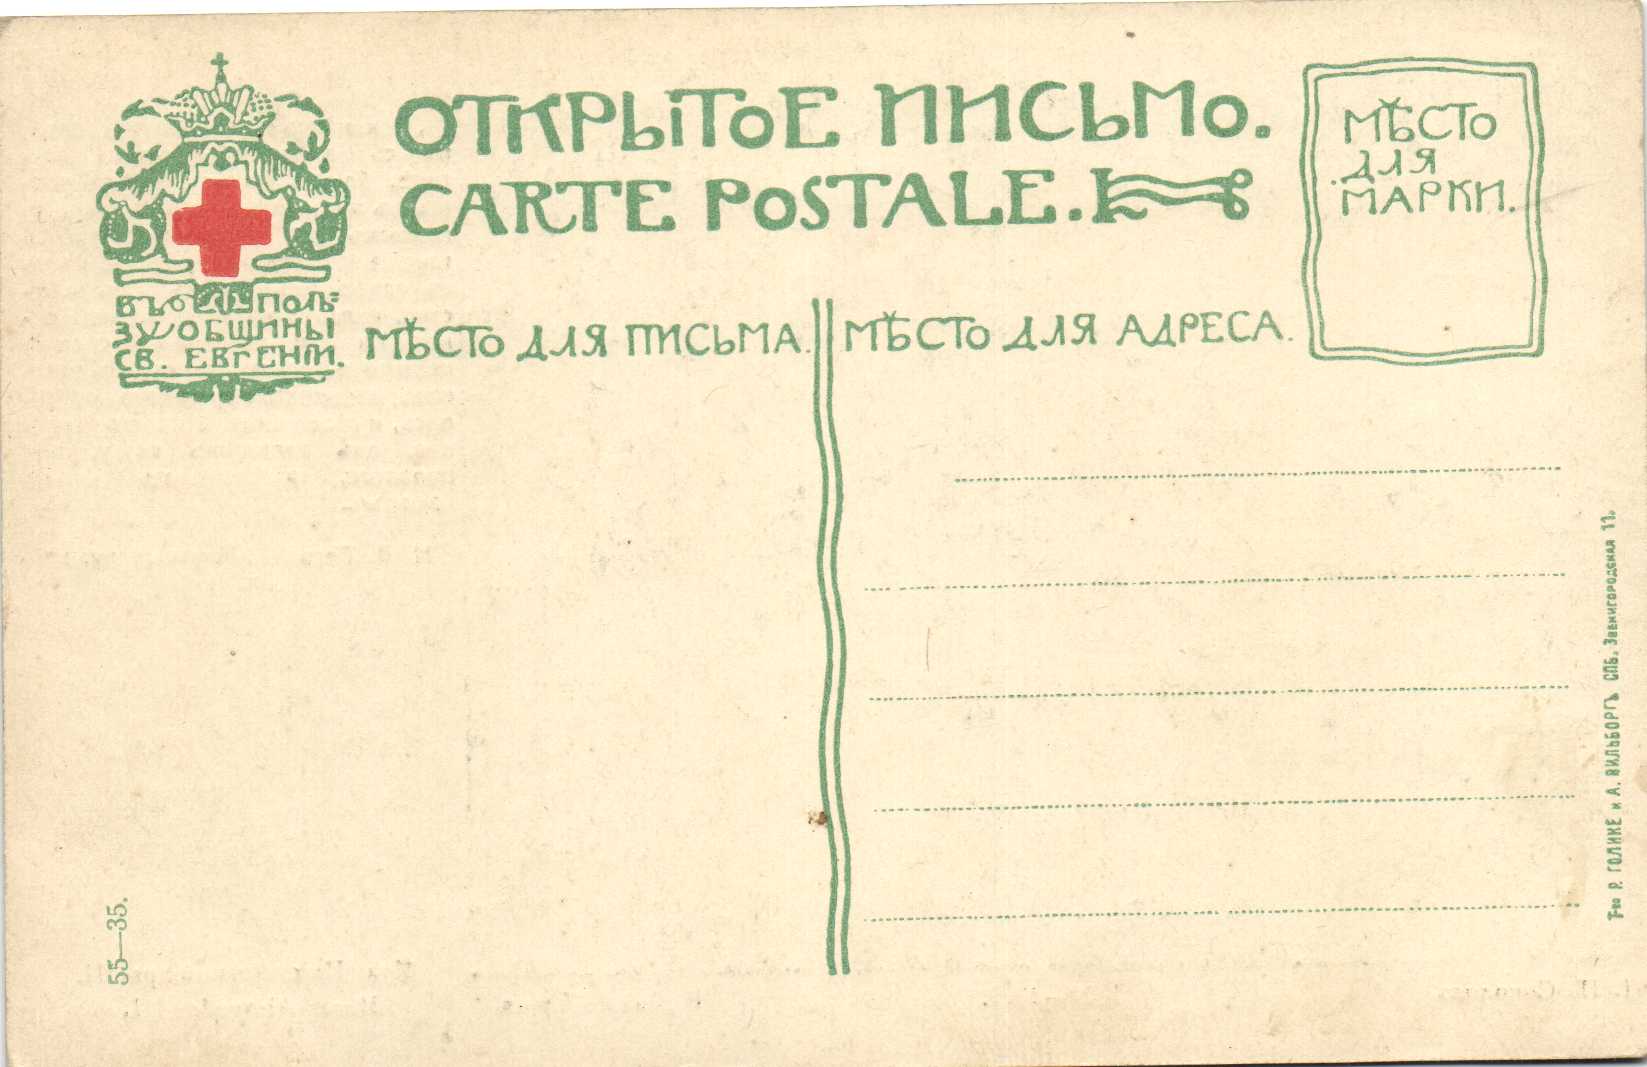 ОТКРЫТОЕ ПИСЬМО.
CARTE POSTALE.
МѢСТО
ДЛЯ
МАРКИ.
ВЪ ПОЛЬ=
ЗУ ОБЩИНЫ
СВ. ЕВГЕНІИ.
МѢСТО ДЛЯ ПИСЬМА.
МѢСТО ДЛЯ АДРЕСА.
55—35.
Т-во Р. ГОЛИКЕ и А. ВИЛЬБОРГЪ СПБ. Звенигородская 11.